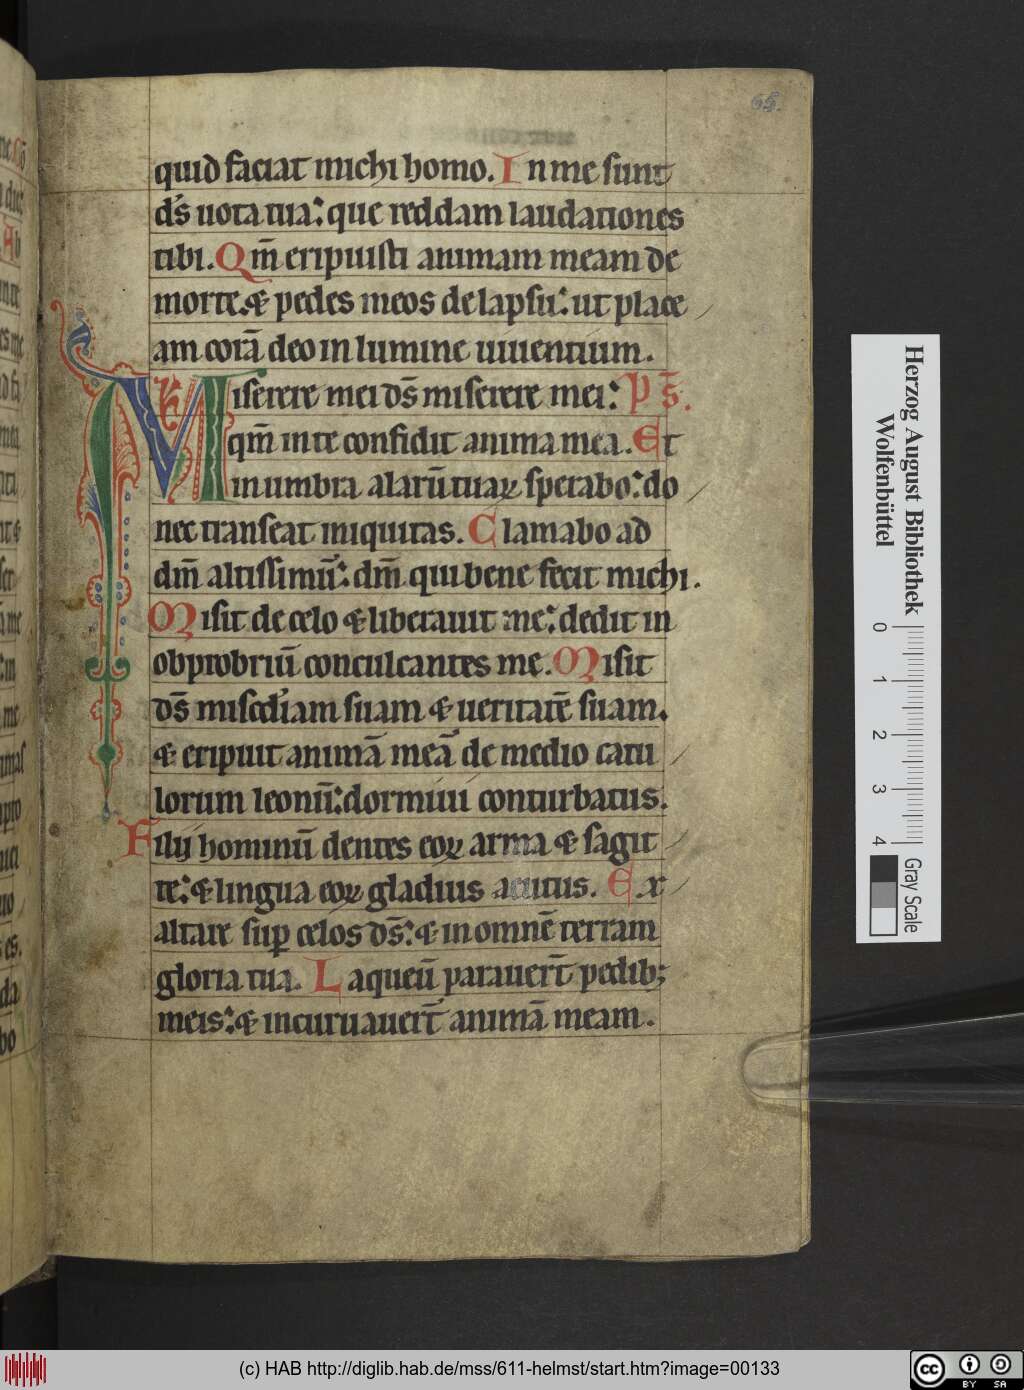 65.
quid faciat michi homo. In me sunt
ds̄ uota tua: que reddam laudationes
tibi. Qm̄ eripuisti animam meam de
morte. & pedes meos de lapsu: ut place
am corā deo in lumine uiuentium.
Miserere mei ds̄ miserere mei: Ps̄.
qm̄ in te confidit anima mea. Et
in umbra alarū tuaꝝ sperabo: do
nec transeat iniquitas. Clamabo ad
dm̄ altissimū: dm̄ qui bene fecit michi.
Misit de celo & liberauit me: dedit in
obprobriū conculcantes me. Misit
ds̄ mis̄cdiam suam & ueritatē suam.
& eripuit animā meā de medio catu
lorum leonū: dormiui conturbatus.
Filij hominū dentes eoꝝ arma & sagit
te: & lingua eoꝝ gladius acutus. Ex
altare suꝑ celos ds̄: & in omnē terram
gloria tua. Laqueū parauer̄t pedib;
meis: & incuruauer̄t animā meam.
Herzog August Bibliothek
Wolfenbüttel
0 1 2 3 4
Gray Scale
(c) HAB http://diglib.hab.de/mss/611-helmst/start.htm?image=00133
cc BY SA